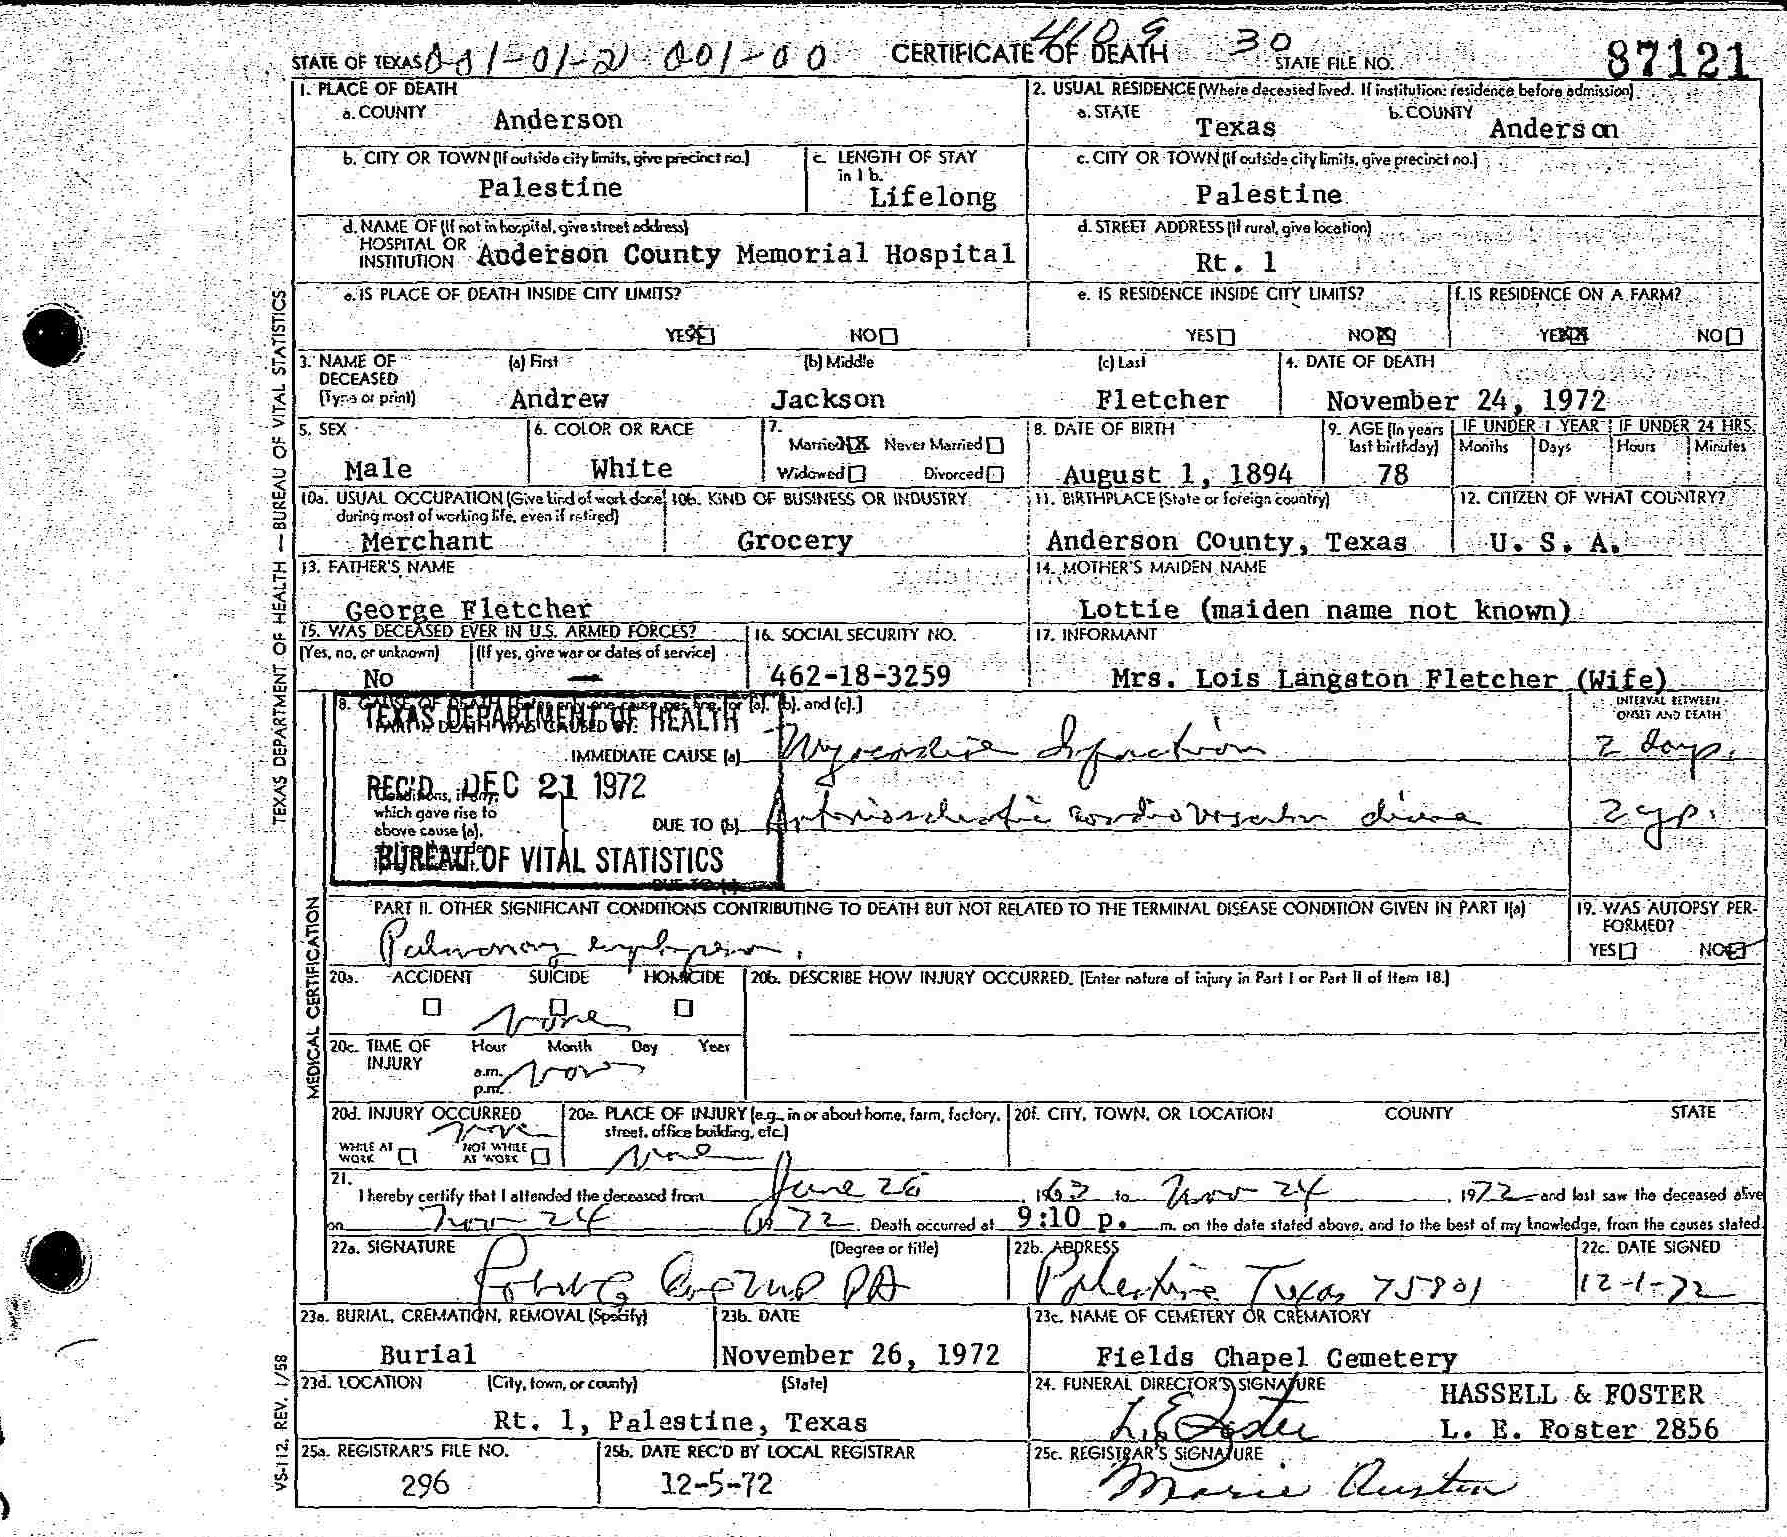 STATE OF TEXAS 001-01-2 001-00 CERTIFICATE OF DEATH 4109 30 STATE FILE NO. 87121
1. PLACE OF DEATH
a. COUNTY Anderson
2. USUAL RESIDENCE (Where deceased lived. If institution: residence before admission)
a. STATE Texas b. COUNTY Anderson
b. CITY OR TOWN (If outside city limits, give precinct no.) Palestine
c. LENGTH OF STAY in 1 b. Lifelong
c. CITY OR TOWN (If outside city limits, give precinct no.) Palestine
d. NAME OF (If not in hospital, give street address)
HOSPITAL OR
INSTITUTION Anderson County Memorial Hospital
d. STREET ADDRESS (If rural, give location)
Rt. 1
e. IS PLACE OF DEATH INSIDE CITY LIMITS?
YES NO
e. IS RESIDENCE INSIDE CITY LIMITS?
YES NO
f. IS RESIDENCE ON A FARM?
YES NO
3. NAME OF DECEASED (Type or print)
(a) First (b) Middle (c) Last
Andrew Jackson Fletcher
4. DATE OF DEATH
November 24, 1972
5. SEX
Male
6. COLOR OR RACE
White
7.
Married Never Married
Widowed Divorced
8. DATE OF BIRTH
August 1, 1894
9. AGE (In years last birthday)
78
IF UNDER 1 YEAR IF UNDER 24 HRS.
Months Days Hours Minutes
10a. USUAL OCCUPATION (Give kind of work done during most of working life, even if retired)
Merchant
10b. KIND OF BUSINESS OR INDUSTRY
Grocery
11. BIRTHPLACE (State or foreign country)
Anderson County, Texas
12. CITIZEN OF WHAT COUNTRY?
U. S. A.
13. FATHER'S NAME
George Fletcher
14. MOTHER'S MAIDEN NAME
Lottie (maiden name not known)
15. WAS DECEASED EVER IN U.S. ARMED FORCES?
(Yes, no, or unknown) (If yes, give war or dates of service)
No —
16. SOCIAL SECURITY NO.
462-18-3259
17. INFORMANT
Mrs. Lois Langston Fletcher (Wife)
18. CAUSE OF DEATH [Enter only one cause per line for (a), (b), and (c).]
PART I. DEATH WAS CAUSED BY:
INTERVAL BETWEEN ONSET AND DEATH
TEXAS DEPARTMENT OF HEALTH
REC'D DEC 21 1972
BUREAU OF VITAL STATISTICS
IMMEDIATE CAUSE (a) Myocardial Infarction 2 days.
Conditions, if any, which gave rise to above cause (a),
DUE TO (b) Arteriosclerotic cardiovascular disease 2 yrs.
DUE TO (c)
PART II. OTHER SIGNIFICANT CONDITIONS CONTRIBUTING TO DEATH BUT NOT RELATED TO THE TERMINAL DISEASE CONDITION GIVEN IN PART I(a)
Pulmonary emphysema.
19. WAS AUTOPSY PERFORMED?
YES NO
20a. ACCIDENT SUICIDE HOMICIDE
None
20b. DESCRIBE HOW INJURY OCCURRED. (Enter nature of injury in Part I or Part II of Item 18.)
20c. TIME OF INJURY
Hour Month Day Year
a.m.
p.m. None
20d. INJURY OCCURRED
None
WHILE AT WORK NOT WHILE AT WORK
20e. PLACE OF INJURY (e.g., in or about home, farm, factory, street, office building, etc.)
None
20f. CITY, TOWN, OR LOCATION COUNTY STATE
21.
I hereby certify that I attended the deceased from June 26, 1963 to Nov 24, 1972 and last saw the deceased alive
on Nov 24 1972. Death occurred at 9:10 p. m. on the date stated above, and to the best of my knowledge, from the causes stated.
22a. SIGNATURE (Degree or title)
22b. ADDRESS
Palestine Texas 75801
22c. DATE SIGNED
12-1-72
23a. BURIAL, CREMATION, REMOVAL (Specify)
Burial
23b. DATE
November 26, 1972
23c. NAME OF CEMETERY OR CREMATORY
Fields Chapel Cemetery
23d. LOCATION (City, town, or county) (State)
Rt. 1, Palestine, Texas
24. FUNERAL DIRECTOR'S SIGNATURE
L. E. Foster
HASSELL & FOSTER
L. E. Foster 2856
25a. REGISTRAR'S FILE NO.
296
25b. DATE REC'D BY LOCAL REGISTRAR
12-5-72
25c. REGISTRAR'S SIGNATURE
Marie Austin
TEXAS DEPARTMENT OF HEALTH — BUREAU OF VITAL STATISTICS
MEDICAL CERTIFICATION
VS-112, REV. 1/58